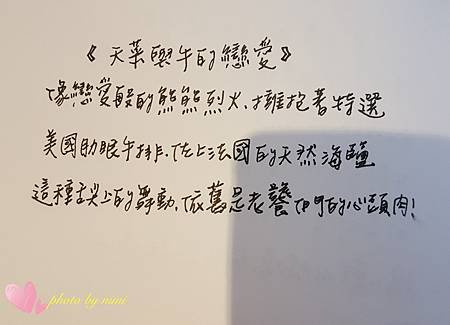 《天菜與牛的戀愛》
像戀愛般的熊熊烈火,擁抱著特選
美國肋眼牛排,佐上法國的天然海鹽
這種舌尖上的舞動,依舊是老饕們的心頭肉!
photo by mimi